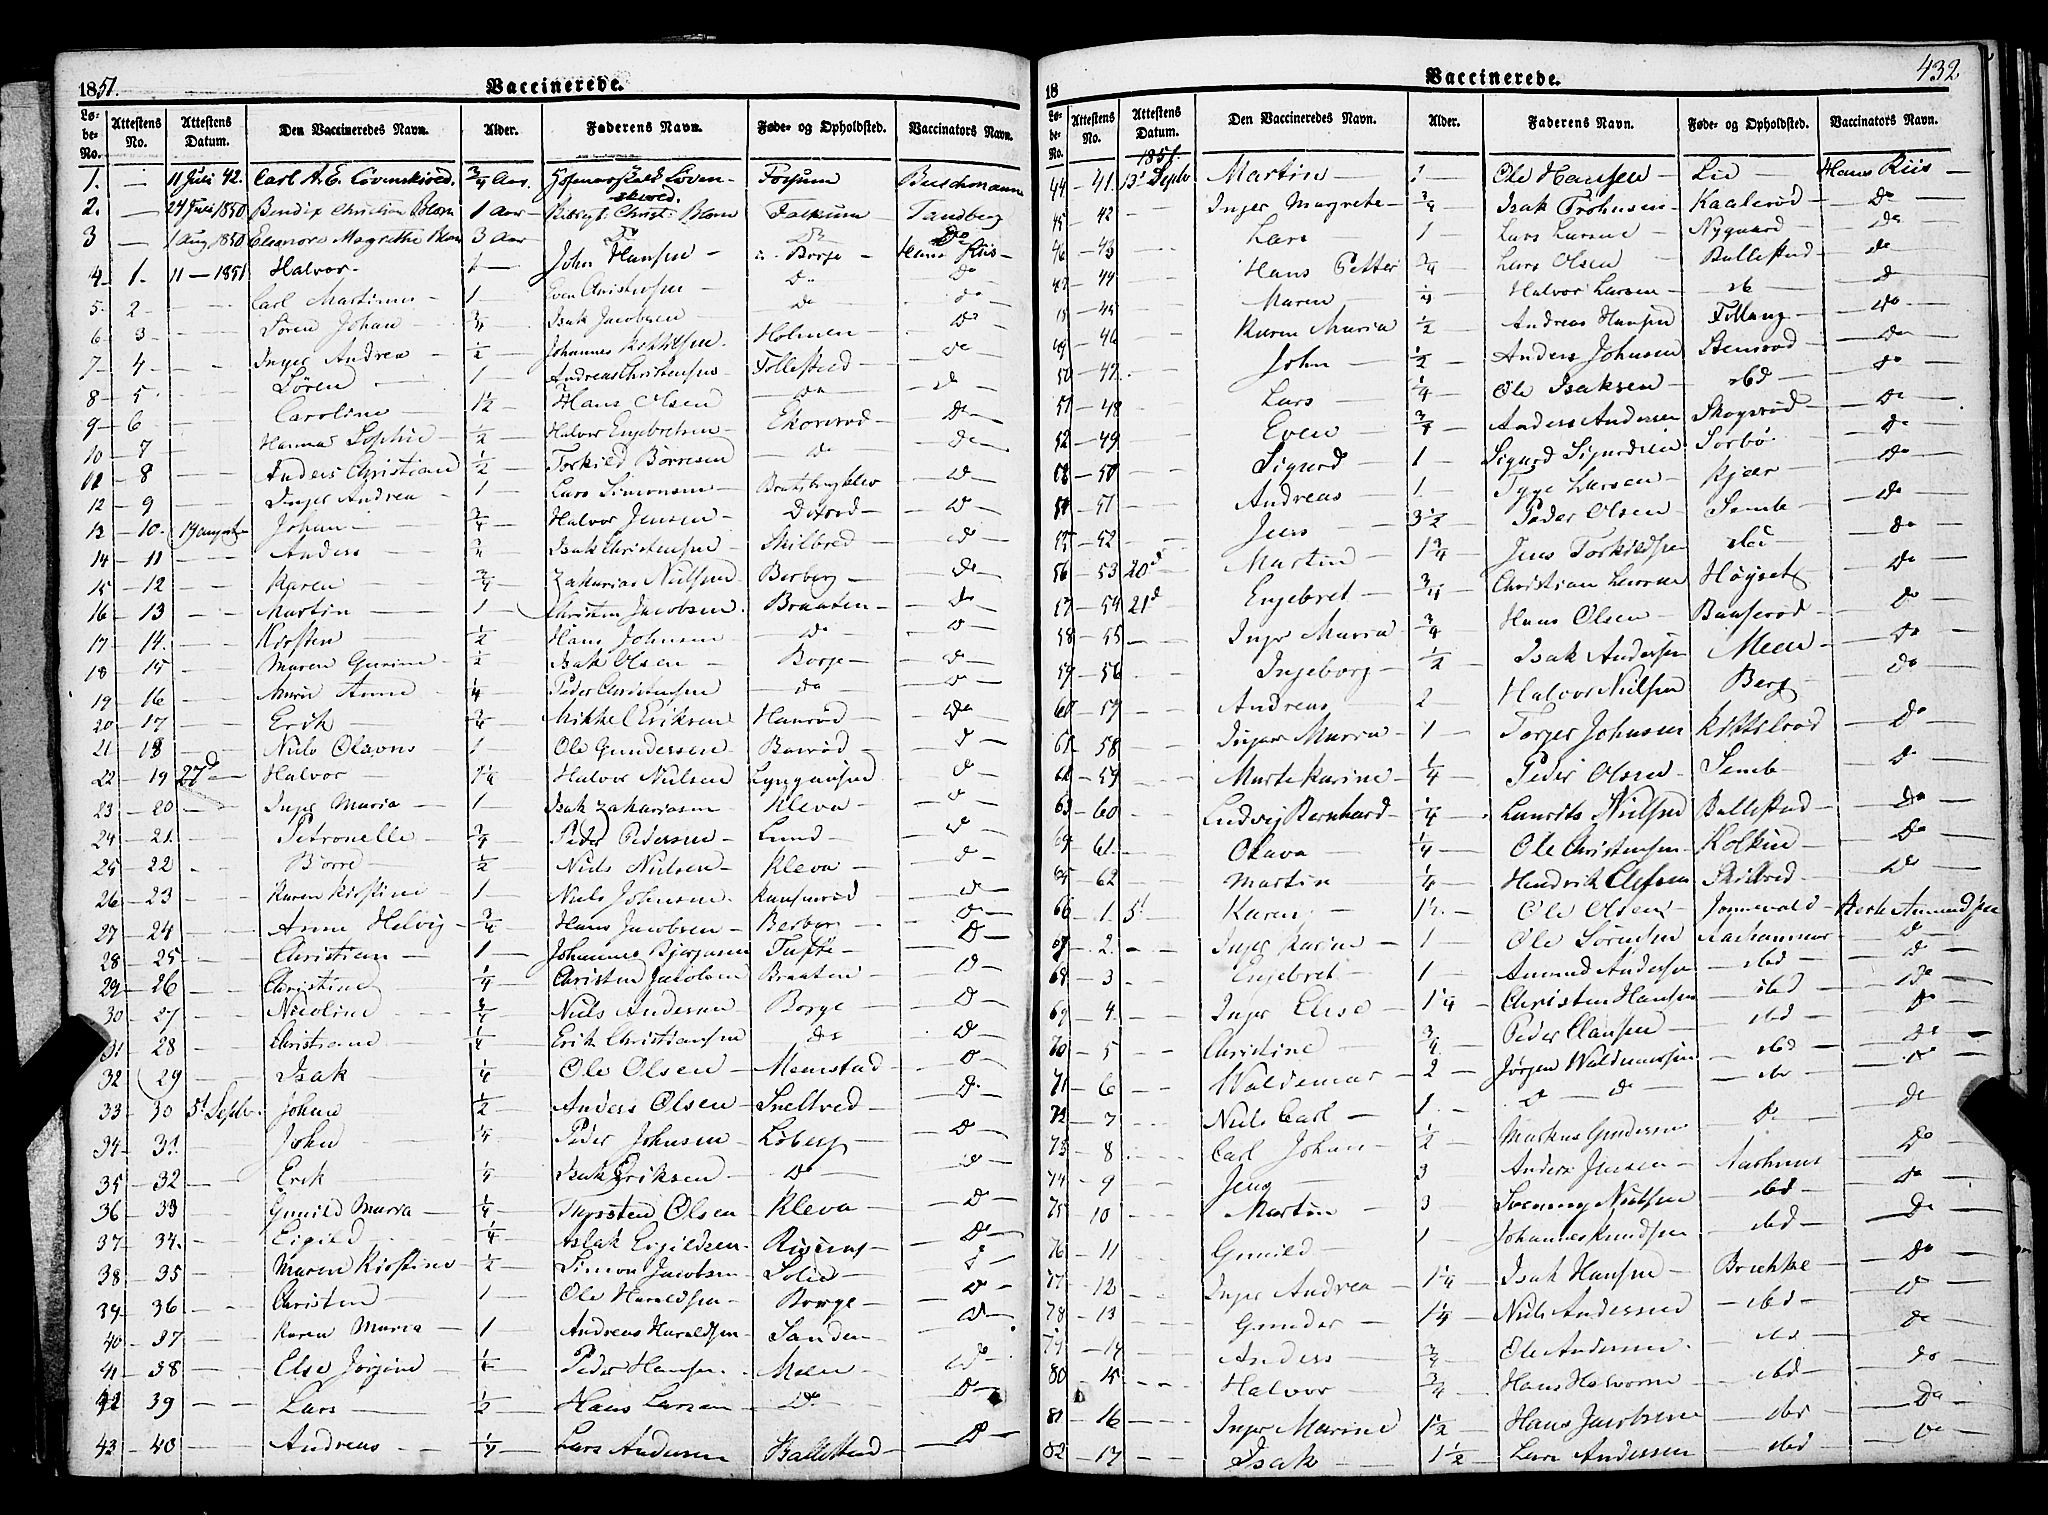 1851.
Vaccinerede.
Lø-be-No. Attestens No. Attestens Datum. Den Vaccineredes Navn. Alder. Faderens Navn. Føde- og Opholdsted. Vaccinators Navn.
1. — 11 Juli 42. Carl A. E. Løvenskiold. 3/4 Aar. Løvenskiold. Fossum Buschmann
2. — 24 Juli 1850 Bendix Christian Blom 1 Aar Christ. Blom Falkum Tandberg
3 — 1 Aug. 1850 Eleonora Magrethe Blom 3 Aar Do Do Do
4 — 1. 11 — 1851 Halvor — 1 — John Hansen — Borge — Hans Riis —
5 — 2 — Carl Martinus — 1 — Even Christensen — Do — Do —
6 — 3 — Søren Johan — 3/4 — Isak Jacobsen — Do — Do —
7 — 4 — Inger Andrea — 1/2 — Johannes Holmen — Do —
8 — 5 — Søren — 1 — Andreas Christensen — Follestad — Do —
9 — 6 — Caroline — 1 1/2 — Hans Olsen — Do — Do —
10 — 7 — Hanna Sophie — 1/2 — Halvor Engebretsen — Ekornrød — Do —
11 — 8 — Anders Christian 1/2 — Torkild Børresen — Do — Do —
12 — 9 — Inger Andrea — 1 — Lars Simonsen — Bratsbergklev — Do —
13 — 10. 19 august Johan — 3/4 — Halvor Jensen — Do —
14 — 11 — Anders — 3/4 Isak Christensen — Skilbred — Do —
15 — 12 — Karen — 3/4 — Zakarias Nielsen Berberg — Do —
16 — 13 — Martin — 1 — Christen Jacobsen. Braaten — Do —
17 — 14. — Kirsten — 1/2 — Hans Johnsen — Do — Do —
18 — 15 — Maren Gurine — 1/2 — Isak Olsen — Borge — Do —
19 — 16 — Marie Anne — 1/4 — Peder Christensen — Do — Do —
20 — 17 — Erik — 3/4 — Mikkel Eriksen — Hanrød — Do —
21 — 18 — Niels Olavus 1 — Ole Gundersen — Do —
22 — 19 27d — Halvor — 1 1/4 — Halvor Nielsen Do —
23 — 20 — Inger Maria — 1 — Isak Zakariasen Kleva — Do —
24 — 21. — Petronelle — 3/4 — Peder Pedersen — Lund — Do —
25 — 22 — Børre — 1/2 — Niels Nielsen — Kleva — Do —
26 — 23 — Karen Kirstine — 1 — Niels Johnsen — Do —
27 — 24 — Anne Helvig — 3/4 — Hans Jacobsen — Berberg — Do —
28 — 25 — Christian — 1 — Johannes Bjørnsen Tufte — Do —
29 — 26 — Christine — 1/4 — Christen Jacobsen Braaten — Do —
30 — 27 — Nicoline — 3/4 — Niels Andersen — Borge — Do —
31 — 28 — Christiane — 1/4 — Erik Christiansen — Do — Do —
32 29 — Isak — 1/4 — Ole Olsen — Menstad — Do —
33 — 30 5t Septbr. Johan — 1/2 — Anders Olsen — Sneltved — Do —
34 — 31 — John — 1/4 — Peder Johnsen — Løberg — Do —
35 — 32 — Erik — 1/4 — Isak Eriksen — Do — Do —
36 — 33 — Gunild Maria — 1/4 — Thorsten Olsen — Kleva — Do —
37 — 34. — Eigild — 1/4 — Aslak Eigildsen — Do —
38 — 35 — Maren Kirstine — 1/2 — Simon Jacobsen — Solie — Do —
39 — 36 — Christen — 1 — Ole Haraldsen — Borge — Do —
40 — 37 — Karen Maria — 1 — Andreas Haraldsen — Sanden — Do —
41 — 38 — Else Jørgine — 1/4 — Peder Hansen — Meen — Do —
42 — 39 — Lars — 1/2 — Hans Larsen — Do — Do —
43 — 40 — Andreas — 1/4 — Lars Andersen Ballestad — Do —
18
Vaccinerede.
432
Lø-be-No. Attestens No. Attestens Datum. Den Vaccineredes Navn. Alder. Faderens Navn. Føde- og Opholdsted. Vaccinators Navn.
1851.
44 — 41 13t Septbr Martin — 1 — Ole Hansen — Lie — Hans Riis —
45 — 42 — Inger Magrete — 3/4 — Isak Frohnsen — Kaalerød — Do —
46 — 43 — Lars — 1 — Lars Larsen — Nygaard — Do —
47 — 44 — Hans Petter 3/4 — Lars Olsen — Ballestad — Do
48 — 45 — Maren — 1/4 — Halvor Larsen — Do
49 — 46 — Karen Maria 1/2 — Andreas Hansen — Do —
50 — 47. — John — 1/2 — Anders Johnsen Stensrød — Do —
51 — 48 — Lars — 1/4 — Ole Isaksen — ibd — Do —
52 — 49 — Even — 3/4 — Anders Andersen Skogsrød — Do —
53 — 50 — Sigurd — 1 — Sigurd Sigurdsen Sorbø — Do —
54 — 51 — Andreas — 1 — Tyge Larsen — Kjær — Do —
55 — 52 — Jens — 3 1/2 — Peder Olsen — Semb — Do —
56 — 53 20d Martin — 1 3/4 — Jens Torkildsen ibd — Do —
57 — 54 21d Engebret — 3/4 — Christian Larsen Høyset — Do —
58 — 55 — Inger Maria — 3/4 — Hans Olsen — Do —
59 — 56 — Ingeborg — 1/2 — Isak Andersen Meen — Do —
60 — 57 — Andreas — 2 — Halvor Nielsen Berg — Do —
61 — 58 — Inger Maria — 1 — Torger Johnsen Do —
62 — 59 — Marte Karine — 1/4 — Peder Olsen — Semb — Do —
63 — 60 — Ludvig Bernhard — 1/4 — Laurits Nielsen Ballestad — Do —
64 — 61. — Olava — 1/4 — Ole Christensen — Do —
65 — 62 — Martin — 1/4 — Hendrik Skilbred — Do —
66 — 1. 5t Karen — 1 1/2 — Ole Olsen — Amundsen
67 — 2. — Inger Karine — 1 — Ole Sørensen Do —
68 — 3 — Engebret — 1 — Amund Andersen — ibd — Do —
69 — 4. — Inger Elise — 1 1/4 — Christen Hansen — ibd — Do —
70 — 5 — Christine — 3/4 — Peder Clausen — ibd — Do —
71 — 6 — Waldemar — 2 — Jørgen Waldemarsen — ibd — Do —
72 — 7 — Niels Carl — 1 — Do — Do — ibd — Do —
73 — 8 — Carl Johan — 1/2 — Markus Gundersen — Do — Do —
74 — 9 — Jens — 3 — Anders Jensen — Do —
75 — 10 — Martin — 3 — Svenning Nielsen — ibd — Do —
76 — 11 — Gunild — 1 — Johannes Knudsen — ibd — Do —
77 — 12 — Inger Andrea — 1 1/4 — Isak Hansen — Brække — Do —
78 — 13 — Gunder — 1 1/4 — Niels Andersen — ibd — Do —
79 — 14 — Anders — 3/4 — Ole Andersen — ibd — Do —
80 — 15 — Halvor — 3/4 — Hans Halvorsen — ibd — Do —
81 — 16 — Inger Marine 1 1/2 — Hans Jacobsen — ibd — Do —
82 — 17 — Isak — 1 1/2 — Lars Andersen — ibd — Do —